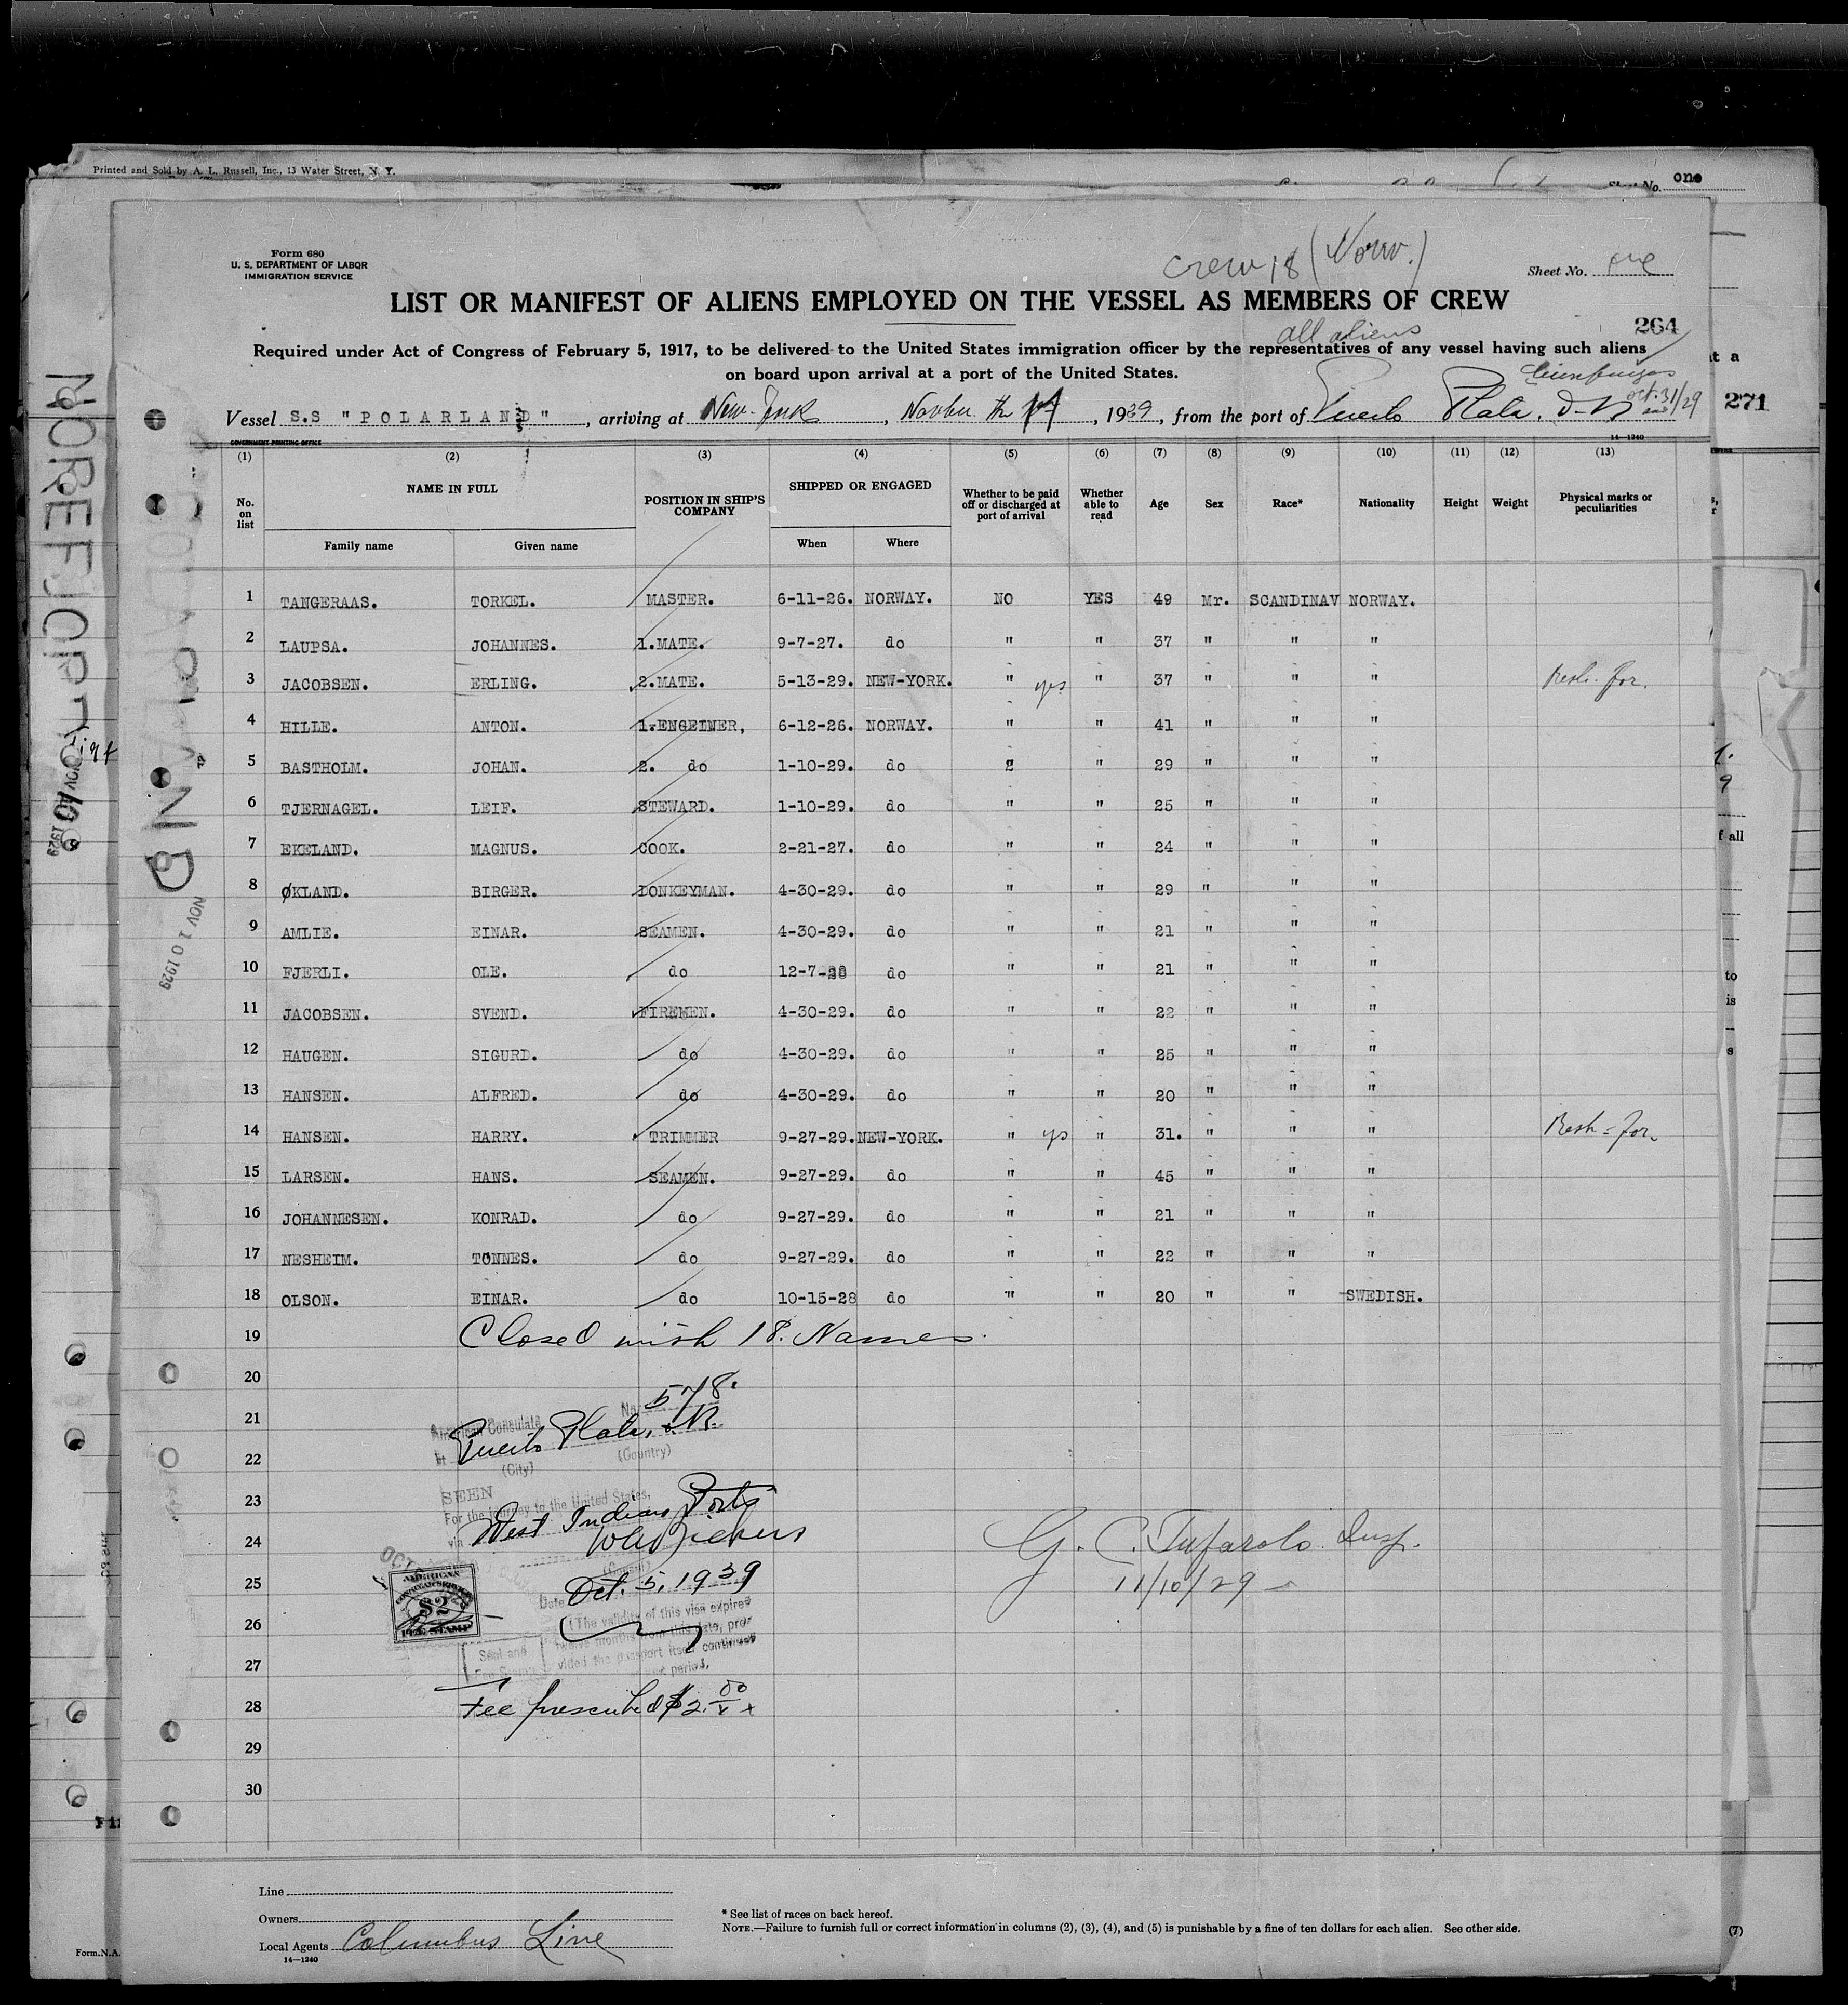 Printed and Sold by A. L. Russell, Inc., 13 Water Street, N. Y.
Sheet No. one
Form 680
U. S. DEPARTMENT OF LABOR
IMMIGRATION SERVICE
Crew 18 (Norw.)
Sheet No. one
LIST OR MANIFEST OF ALIENS EMPLOYED ON THE VESSEL AS MEMBERS OF CREW
all aliens
264
Required under Act of Congress of February 5, 1917, to be delivered to the United States immigration officer by the representatives of any vessel having such aliens
on board upon arrival at a port of the United States.
Cienfuegos
Oct. 31/29
Vessel S.S "POLARLAND", arriving at New-York, Novbr. the, 1929, from the port of Puerto Plata, D-R
271
GOVERNMENT PRINTING OFFICE
14—1240
(1) (2) (3) (4) (5) (6) (7) (8) (9) (10) (11) (12) (13)
No. on list NAME IN FULL POSITION IN SHIP'S COMPANY SHIPPED OR ENGAGED Whether to be paid off or discharged at port of arrival Whether able to read Age Sex Race* Nationality Height Weight Physical marks or peculiarities
Family name Given name When Where
1 TANGERAAS. TORKEL. MASTER. 6-11-26. NORWAY. NO YES 49 Mr. SCANDINAV NORWAY.
2 LAUPSA. JOHANNES. 1.MATE. 9-7-27. do " " 37 " " "
3 JACOBSEN. ERLING. 2.MATE. 5-13-29. NEW-YORK. " yes " 37 " " " Resh. for.
4 HILLE. ANTON. 1.ENGEINER, 6-12-26. NORWAY. " " 41 " " "
5 BASTHOLM. JOHAN. 2. do 1-10-29. do " " 29 " " "
6 TJERNAGEL. LEIF. STEWARD. 1-10-29. do " " 25 " " "
7 EKELAND. MAGNUS. COOK. 2-21-27. do " " 24 " " "
8 ØKLAND. BIRGER. DONKEYMAN. 4-30-29. do " " 29 " " "
9 AMLIE. EINAR. SEAMEN. 4-30-29. do " " 21 " " "
10 FJERLI. OLE. do 12-7-28 do " " 21 " " "
11 JACOBSEN. SVEND. FIREMEN. 4-30-29. do " " 22 " " "
12 HAUGEN. SIGURD. do 4-30-29. do " " 25 " " "
13 HANSEN. ALFRED. do 4-30-29. do " " 20 " " "
14 HANSEN. HARRY. TRIMMER 9-27-29. NEW-YORK. " ys " 31. " " " Resh = for.
15 LARSEN. HANS. SEAMEN. 9-27-29. do " " 45 " " "
16 JOHANNESEN. KONRAD. do 9-27-29. do " " 21 " " "
17 NESHEIM. TONNES. do 9-27-29. do " " 22 " " "
18 OLSON. EINAR. do 10-15-28 do " " 20 " " SWEDISH.
19 Closed with 18. Names.
20
No. 578.
21 American Consulate
at Puerto Plata, D.R.
22 (City) (Country)
23 SEEN
For the journey to the United States,
via West Indian Ports
24
G. C. Tufarolo Insp.
25 Date Oct. 5, 1929
11/10/29
AMERICAN
$2
FEE STAMP
26 (The validity of this visa expires
twelve months from this date, pro-
27 vided the passport itself continues
period.
Seal and
Fee Stamp
28 Fee prescribed $2.00
29
30
POLARLAND
NOV 10 1929
NOREFJORD
NOV 10 1929
Line
Owners
Local Agents Columbus Line
14—1240
* See list of races on back hereof.
NOTE.—Failure to furnish full or correct information in columns (2), (3), (4), and (5) is punishable by a fine of ten dollars for each alien. See other side.
(7)
Form N.A.